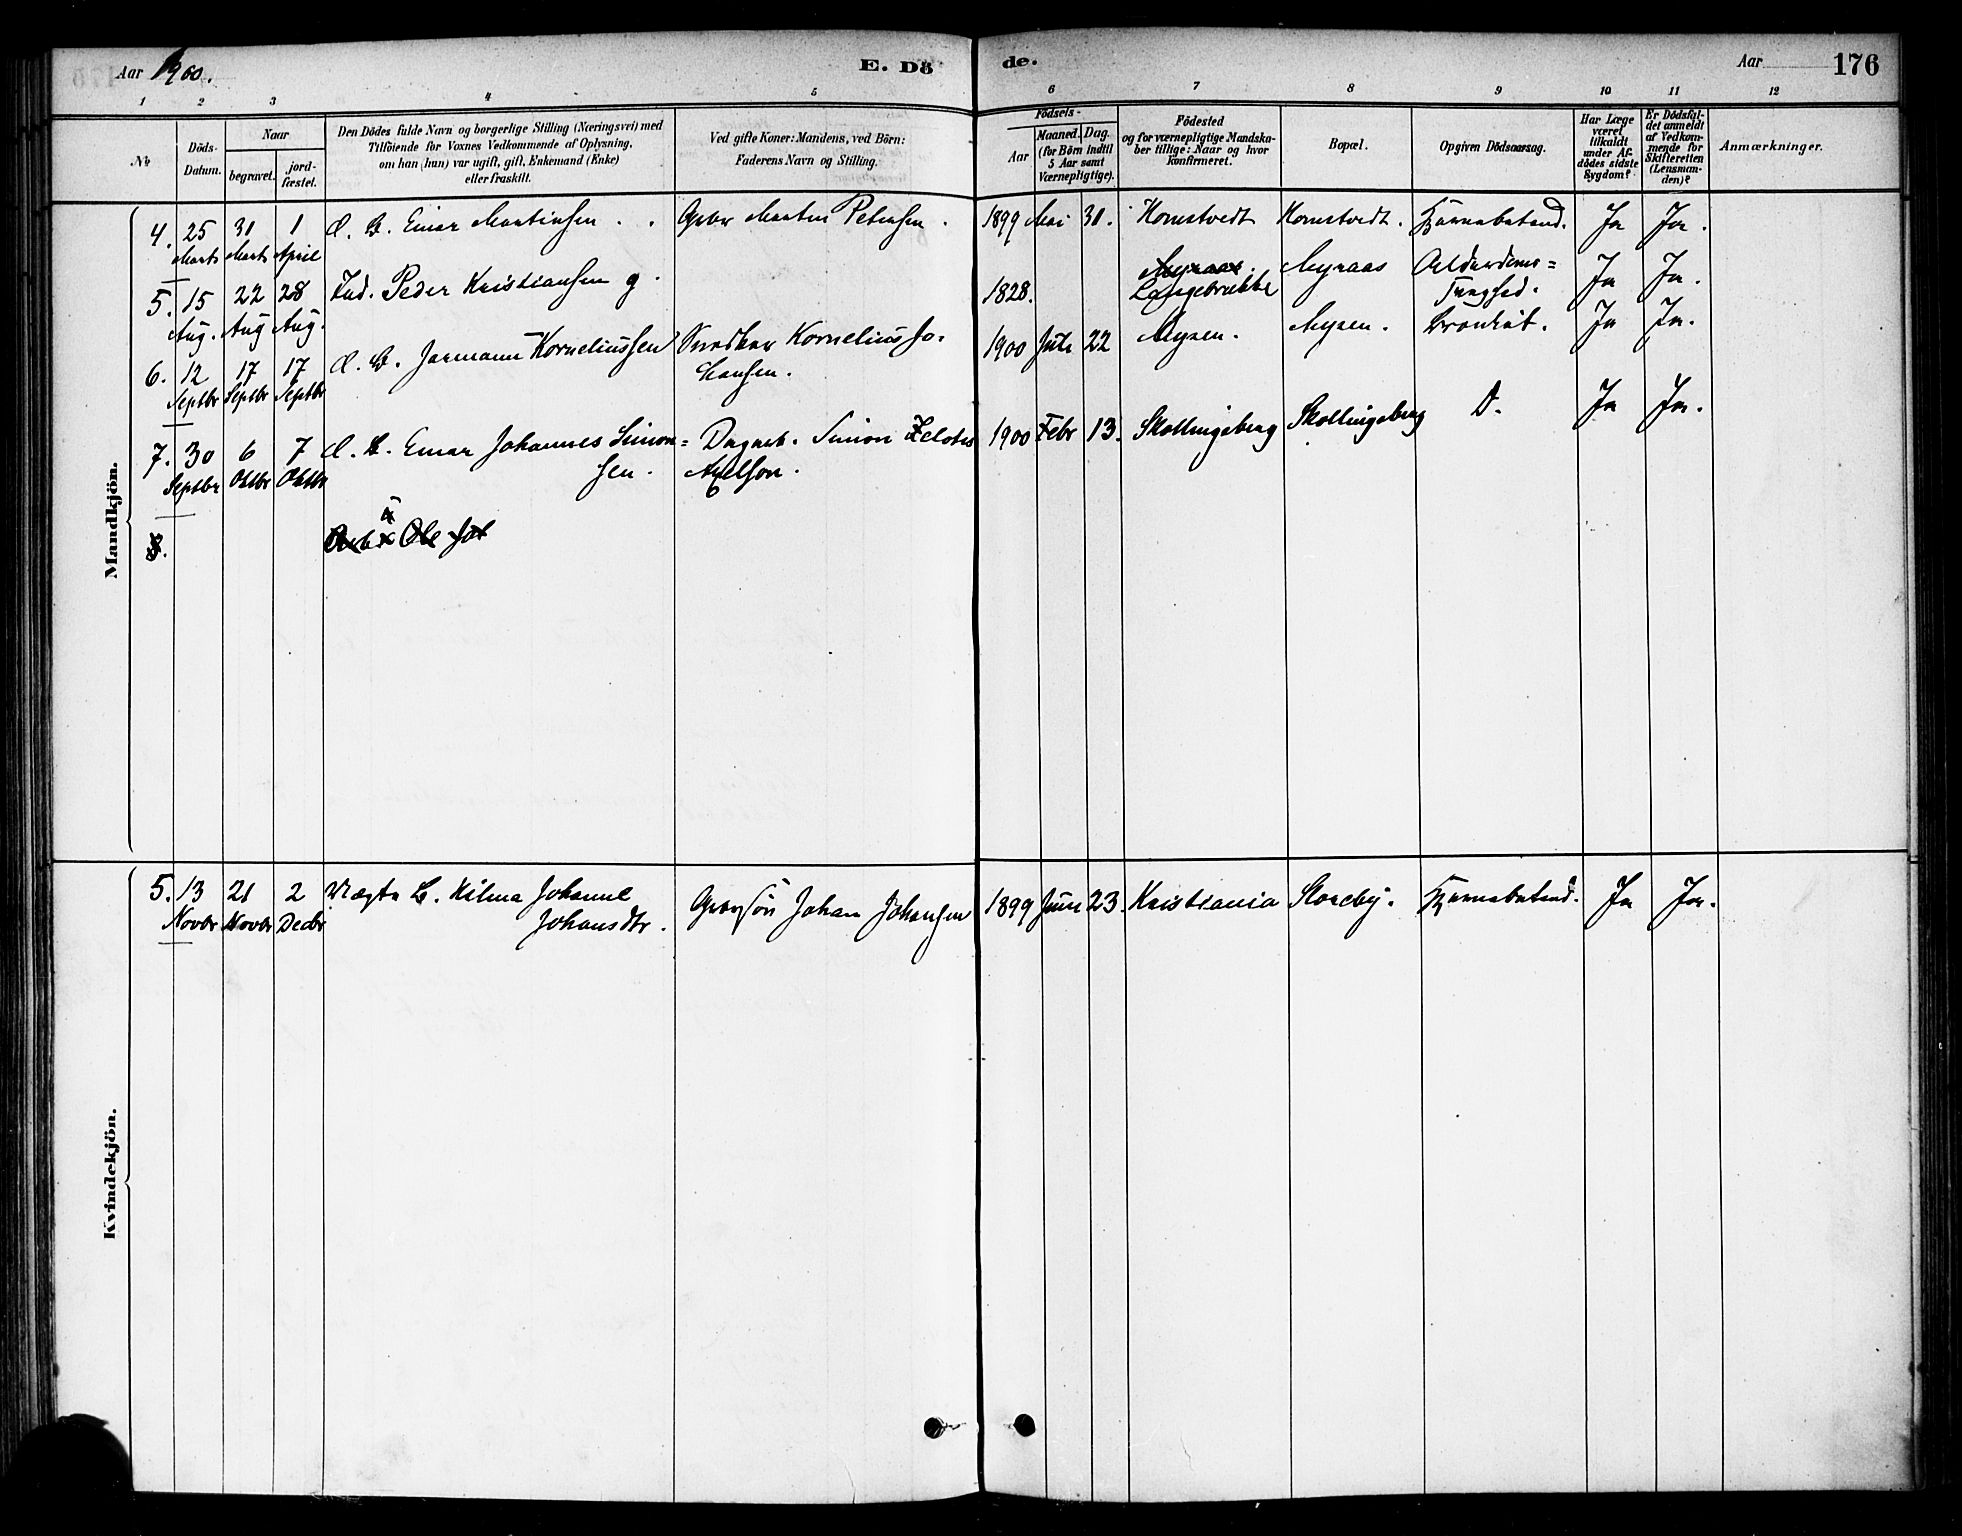 Aar 1900.
E. Dö
de.
Aar
176
1 2 3 4 5 6 7 8 9 10 11 12
No
Döds-
Datum.
Naar
begravet.
jord-
fæstet.
Den Dödes fulde Navn og borgerlige Stilling (Næringsvei) med
Tilföiende for Voxnes Vedkommende af Oplysning,
om han (hun) var ugift, gift, Enkemand (Enke)
eller fraskilt.
Ved gifte Koner: Mandens, ved Börn:
Faderens Navn og Stilling.
Födsels-
Aar
Maaned. Dag.
(for Börn indtil
5 Aar samt
Værnepligtige).
Födested
og for værnepligtige Mandska-
ber tillige: Naar og hvor
konfirmeret.
Bopæl.
Opgiven Dödsaarsag.
Har Læge
været
tilkaldt
under Af-
dödes sidste
Sygdom?
Er Dödsfal-
det anmeldt
af Vedkom-
mende for
Skifteretten
(Lensman-
den)?
Anmærkninger.
Mandkjön.
4. 25 31 1 Einar Martinsen . . Martin Petersen . 1899 Mai 31. Komstvedt Komstvedt. Ja Ja.
Marts Marts April
5. 15 22 28 Ind. Peder Kristiansen g. 1828. Myraas Myraas Alderdoms= Ja Ja.
Aug. Aug Aug. Langebrække Tunghed.
6. 12 17 17 Jarmann Korneliussen Snedker Kornelius Jo- 1900 Juli 22 Mysen. Mysen. Bronkit. Ja Ja.
Septbr Septbr Septbr hansen.
7. 30 6 7 Einar Johannes Simon= Dagarb. Simon Zelotes 1900 Febr 13. Skollingsberg Skollingsberg D. Ja Ja.
Septbr Oktbr Oktbr sen. Axelson.
8. Ole
Kvindekjön.
5. 13 21 2 Hilma Johanne Johan Johansen 1899 Juni 23. Kristiania Storeby. Ja Ja.
Novbr Novbr Decbr Johansdtr.